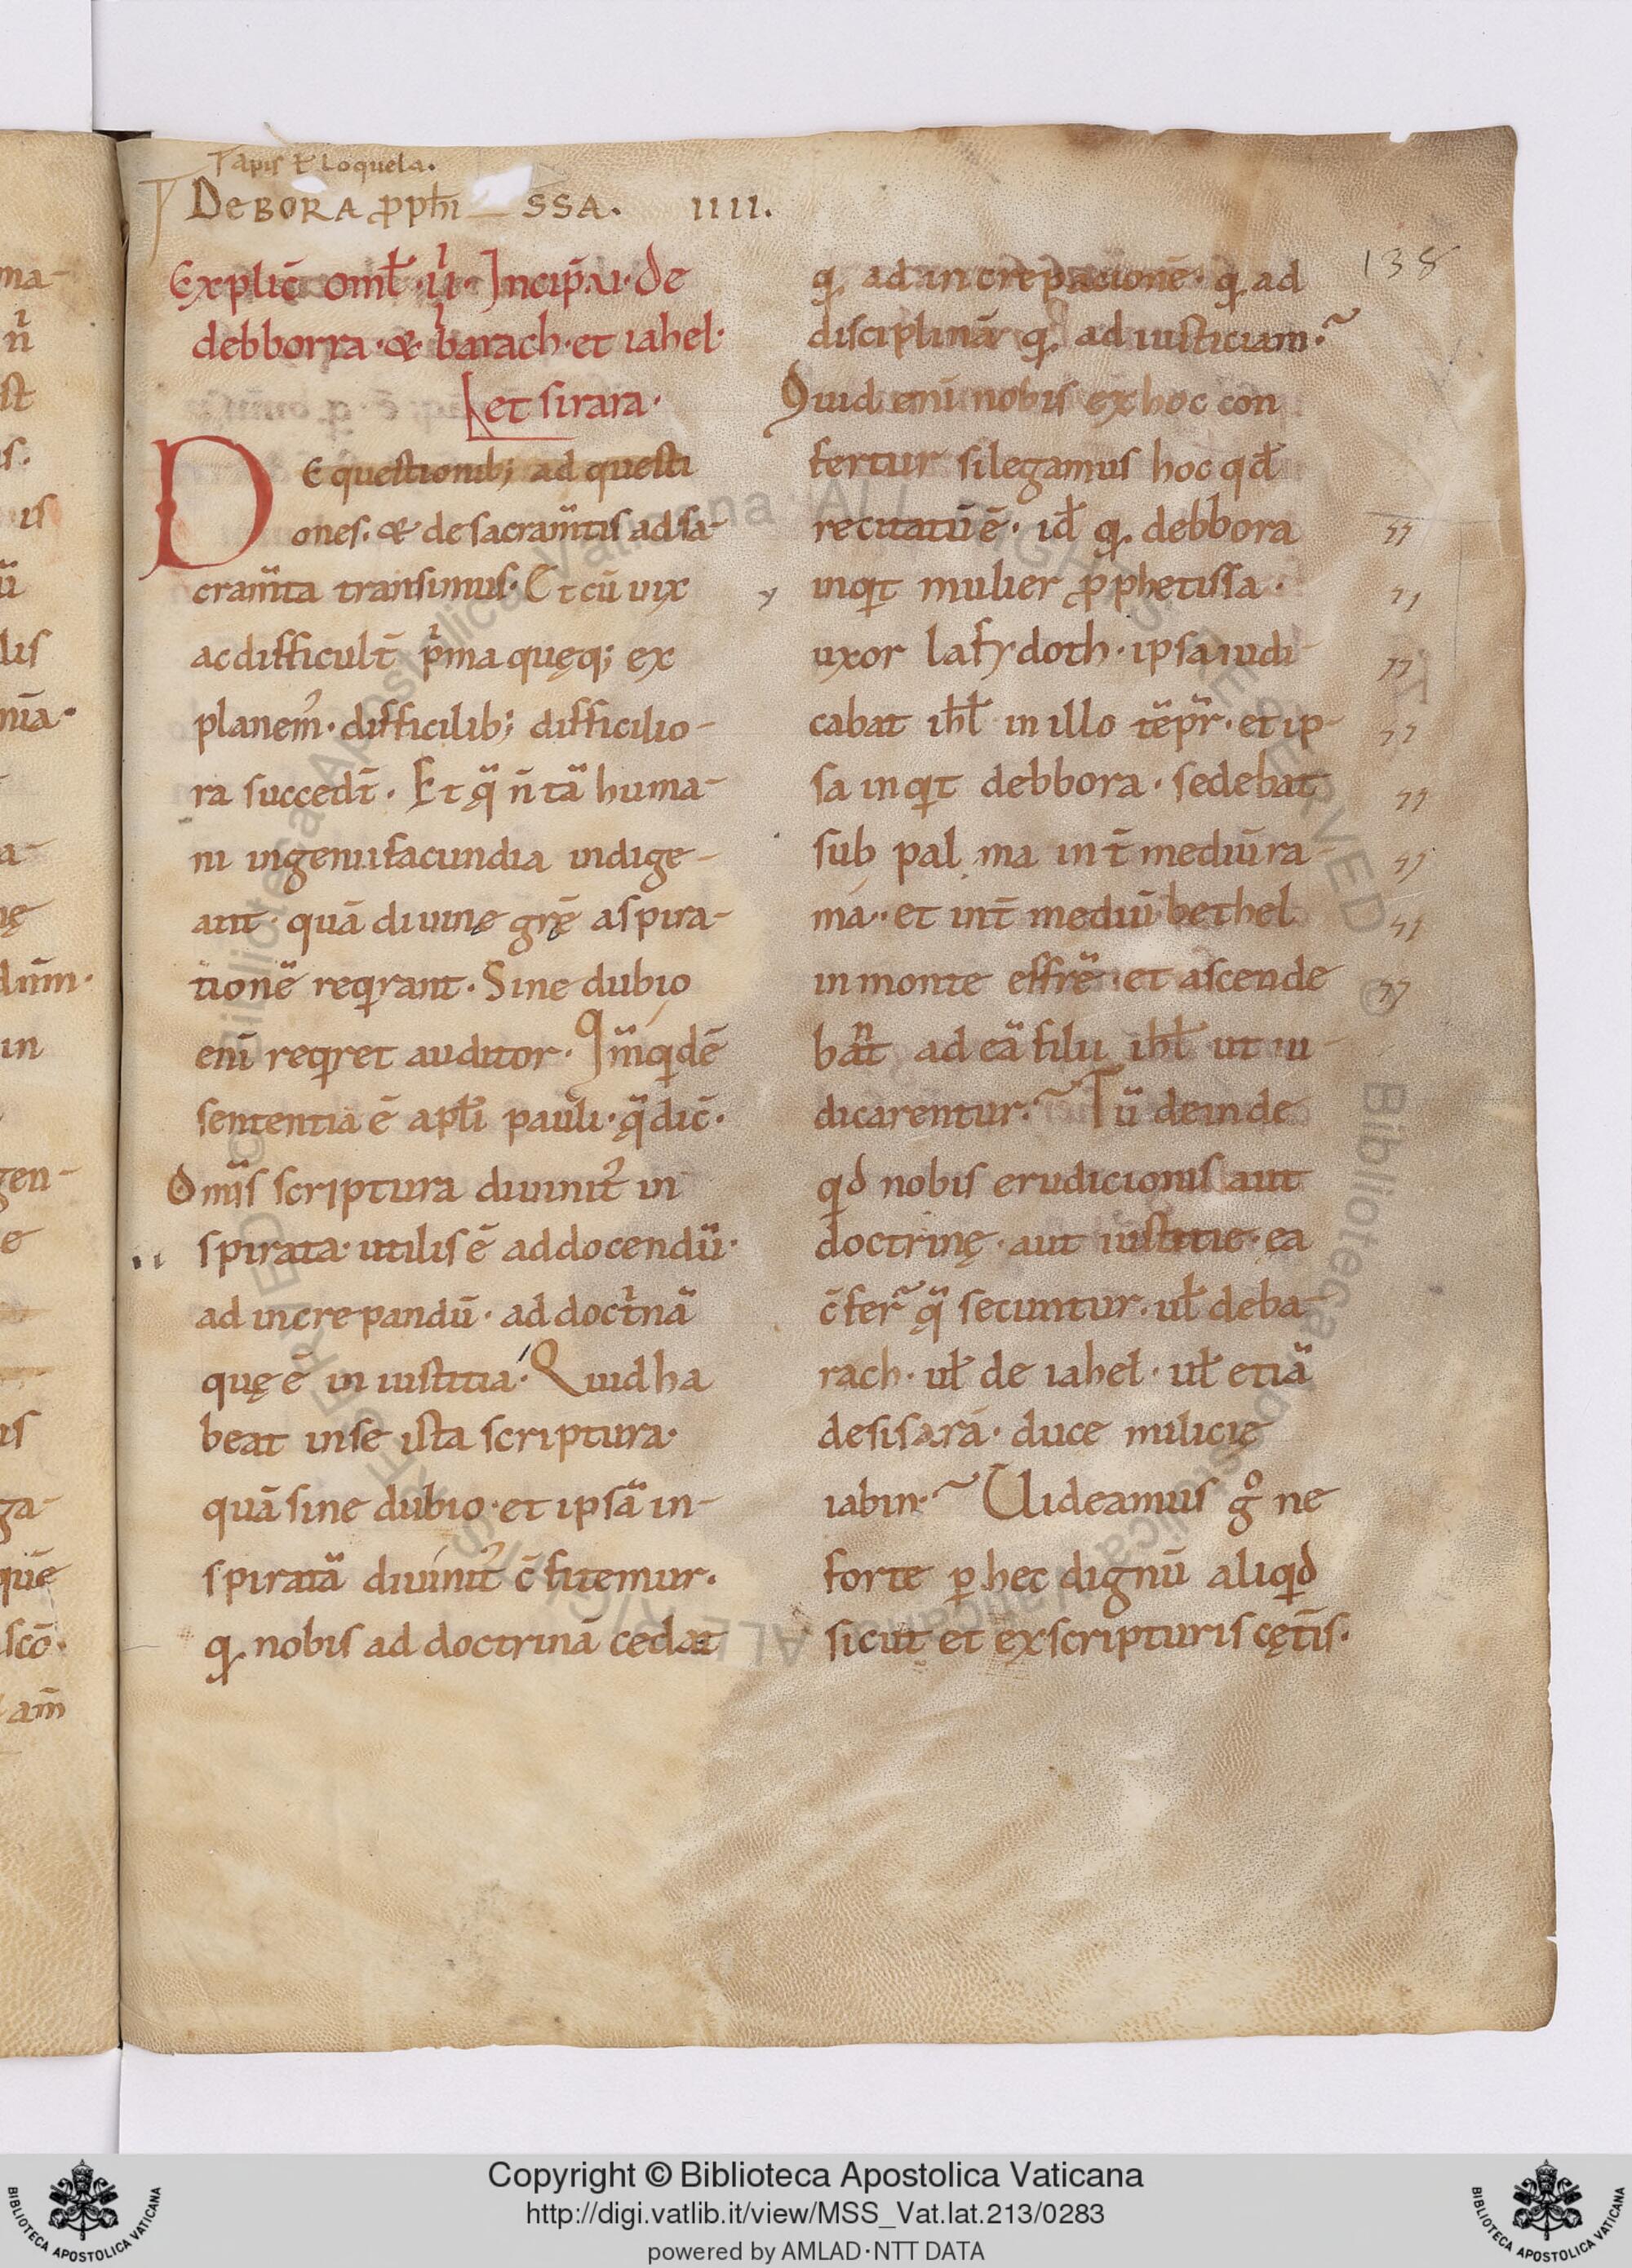 Tapis & Loquela.
DeBORA ꝓph̄i SSA. IIII.
138
Explic̄ omł ·u̍· Incip̄.ui·de
debborra·&·barach·et iahel·
et sirara·
DE questionib; ad questi
ones. & de sacram̄tis ad sa-
cram̄ta transimus· Et cū uix
ac difficult̄ p̍ma quęq; ex
planem᷒· difficilib; difficilio-
ra succedt̄· Et q̄ n̄ tā huma-
ni ingenii facundia indige-
ant· quā diuinę grę̄ aspira-
tionē reqͥrant· Sine dubio
enī reqͥret auditor· Qm̄qͥdē
sententia ē apłi pauli·q̄ dic̄·
Om̄is scriptura diuinit᷒ in
spirata· utilis ē ad docendū·
ad increpandū· ad doct̍nā
quę ē in iustitia· Quid ha
beat in se ista scriptura·
quā sine dubio·et ipsā in-
spiratā diuinit᷒ c̄fitemur·
q. nobis ad doctrinā cedat
q. ad increpacionē· q. ad
disciplinā q. ad iusticiam·~
Quid enī nobis ex hoc con
fertur si legamus hoc qđ
recitatū ē· iđ q. debbora
inqͥt mulier ꝓphetissa·
uxor lafydoth· ipsa iudi-
cabat ihł in illo tēpr̄· et ip-
sa inqͥt debbora· sedebat
sub pal ma int̄ mediū ra-
ma·· et int̄ mediū bethel
in monte effrē· et ascende
bant ad eā filii ihł ut iu-
dicarentur·~ Tū deinde
qͥd nobis erudicionis aut
doctrinę· aut iustitie· ea
c̄fer᷒ q̄ secuntur· uł de ba-
rach· uł de iahel· uł etiā
de sisara· duce milicię
iabin·~ Uideamus gͦ ne
forte ꝑ hec dignū aliqͥd
sicut et ex scripturis cęt̄is·
Copyright © Biblioteca Apostolica Vaticana
http://digi.vatlib.it/view/MSS_Vat.lat.213/0283
powered by AMLAD·NTT DATA
BIBLIOTECA APOSTOLICA VATICANA
BIBLIOTECA APOSTOLICA VATICANA